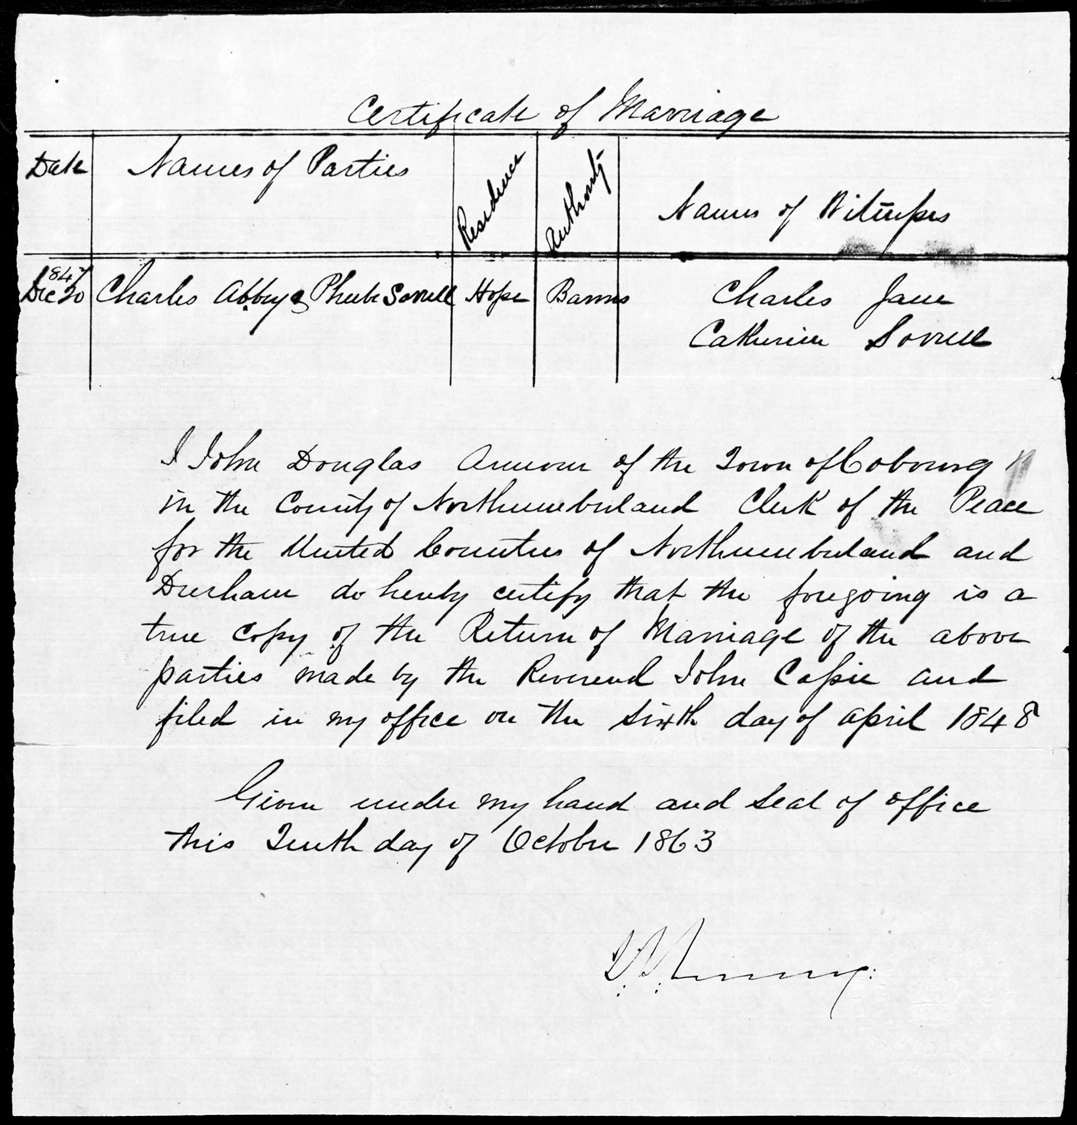 Certificate of Marriage
Date Names of Parties Residence Authority Names of Witnesses
1847
Dec 20 Charles Abbey & Phebe Sorrell Hope Banns Charles Jane
Catherine Sorrell
I John Douglas Armour of the Town of Cobourg
in the County of Northumberland Clerk of the Peace
for the United Counties of Northumberland and
Durham do hereby certify that the foregoing is a
true copy of the Return of Marriage of the above
parties made by the Reverend John Cassie and
filed in my office on the sixth day of April 1848
Given under my hand and Seal of office
this Tenth day of October 1863